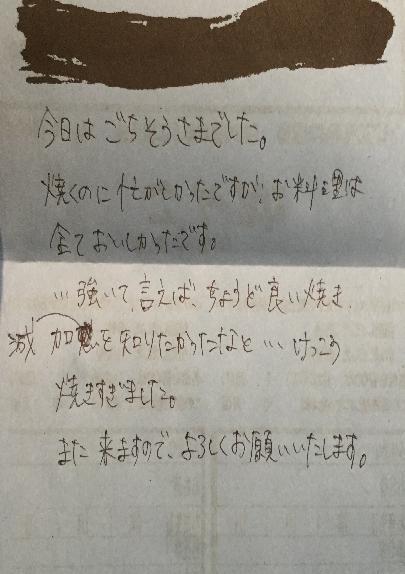 今日は ごちそうさまでした。
焼くのに 忙がしかったですが、お料理は
全て おいしかったです。
… 強いて 言えば、ちょうど良い焼き
加減を知りたかったなと … けっこう
焼きすぎました。
また 来ますので、よろしくお願いいたします。